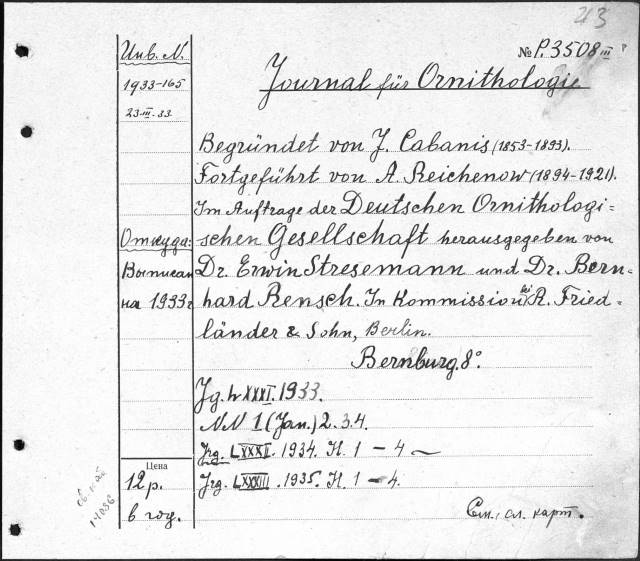 43
Инв. N.
1933-165
23-III-33
Откуда:
Выписан
на 1933г
Цена
12 р.
в год.
№ P.3508 III
Journal für Ornithologie
Begründet von J. Cabanis (1853-1893).
Fortgeführt von A. Reichenow (1894-1921).
Im Auftrage der Deutschen Ornithologi=
schen Gesellschaft herausgegeben von
Dr. Erwin Stresemann und Dr. Bern=
hard Rensch. In Kommission bei R. Fried=
länder & Sohn, Berlin.
Bernburg. 8°.
Jg. LXXXI. 1933.
NN 1 (Jan.) 2. 3. 4.
Jrg. LXXXII. 1934. H. 1 - 4
Jrg. LXXXIII. 1935. H. 1 - 4.
См. сл. карт.